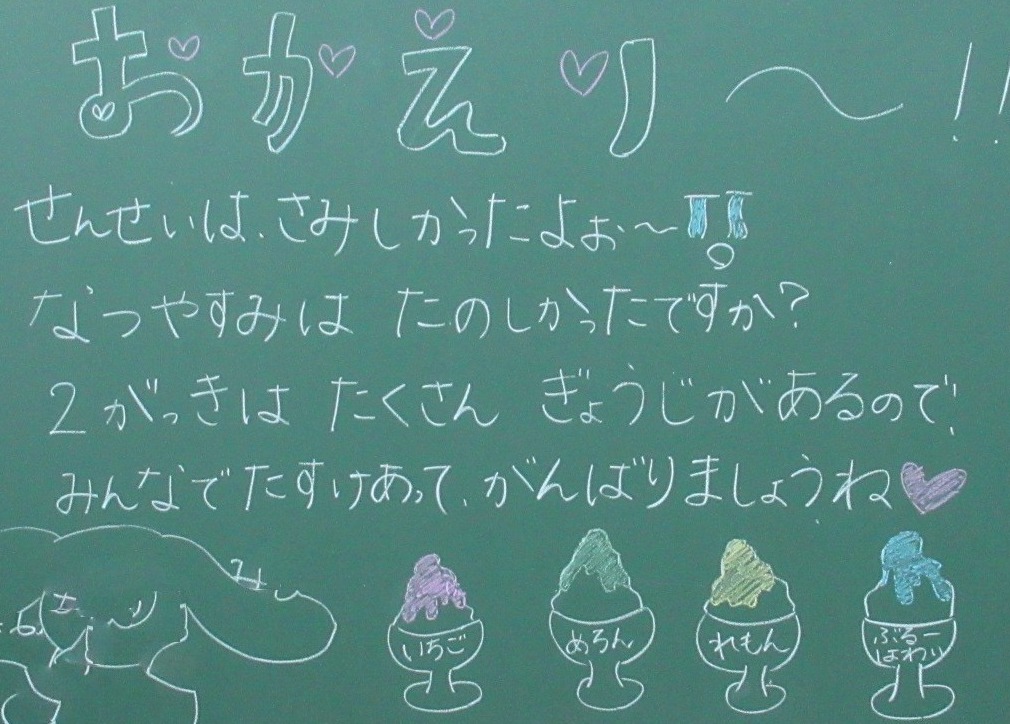 おかえり〜!!
せんせいは、さみしかったよぉ〜
なつやすみは たのしかったですか?
2がっきは たくさん ぎょうじがあるので、
みんなでたすけあって、がんばりましょうね
いちご
めろん
れもん
ぶるー
はわい